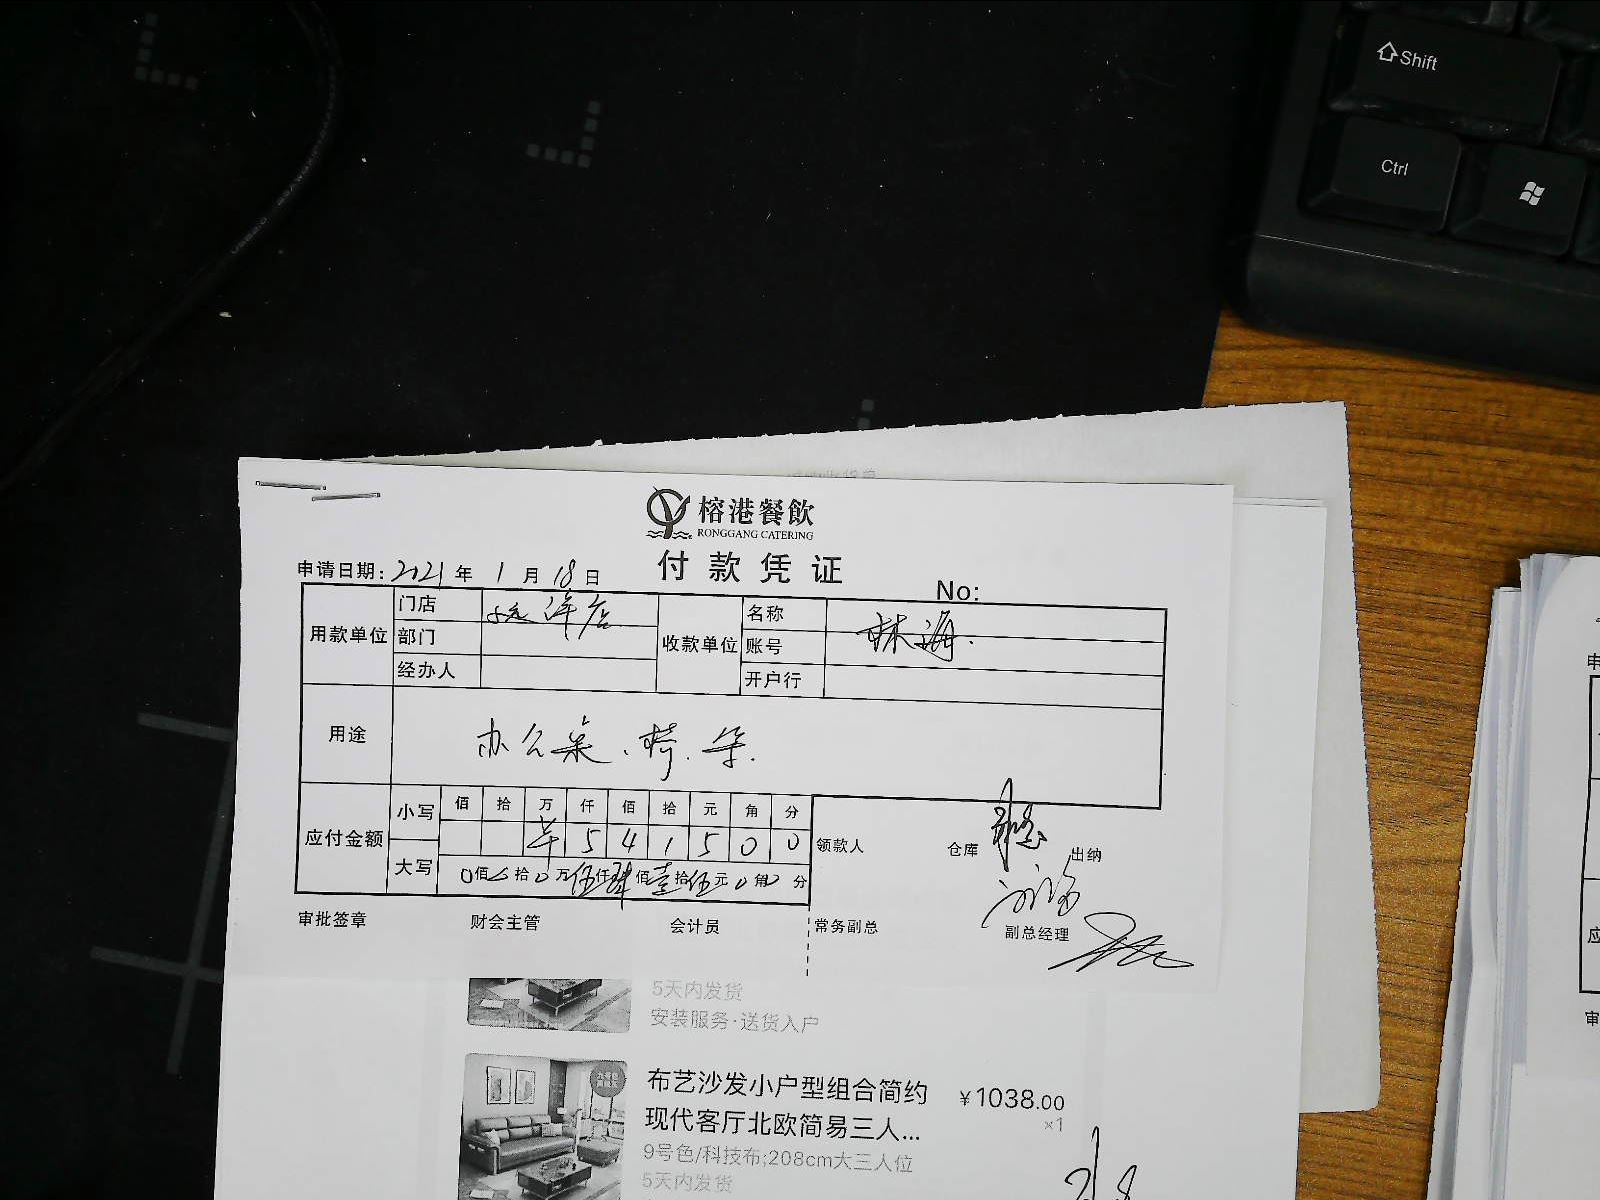 Shift
Ctrl
榕港餐飲
RONGGANG CATERING
付款凭证
申请日期: 2021 年 1 月 18 日
No:
用款单位 门店 远洋店 收款单位 名称 林海
部门 账号
经办人 开户行
用途 办公桌、椅、等.
应付金额 小写 佰 拾 万 仟 佰 拾 元 角 分
¥ 5 4 1 5 0 0
大写 0佰0拾0万伍仟肆佰壹拾伍元0角0分
领款人 仓库 出纳
审批签章 财会主管 会计员 常务副总 副总经理
5天内发货
安装服务·送货入户
布艺沙发小户型组合简约 ¥1038.00
现代客厅北欧简易三人... ×1
9号色/科技布;208cm大三人位
5天内发货
申
应
审